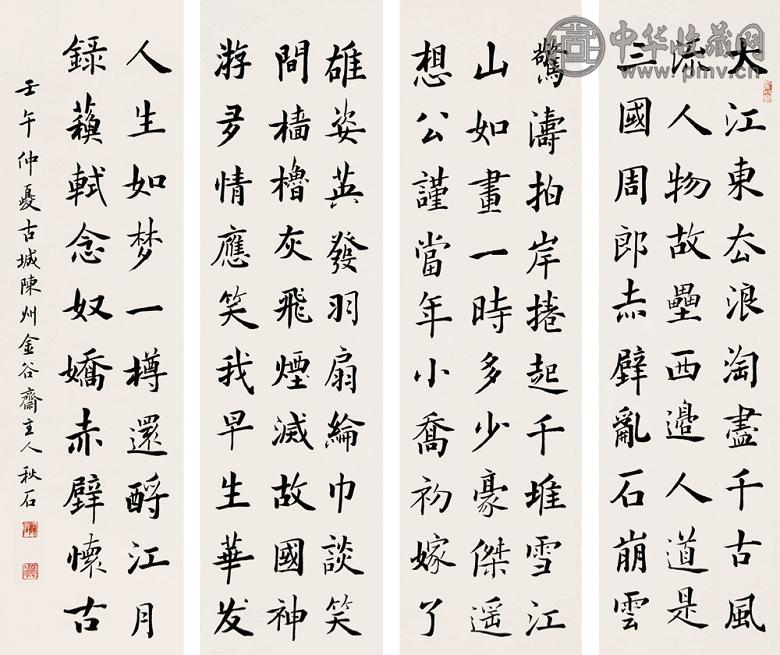 中华收藏网
大江東去浪淘盡千古風
流人物故壘西邊人道是
三國周郎赤壁亂石崩雲
驚濤拍岸捲起千堆雪江
山如畫一時多少豪傑遥
想公謹當年小喬初嫁了
雄姿英發羽扇綸巾談笑
間檣櫓灰飛煙滅故國神
游多情應笑我早生華发
人生如梦一樽還酹江月
録蘇軾念奴嬌赤壁懷古
壬午仲夏古城陳州金谷齋主人秋石